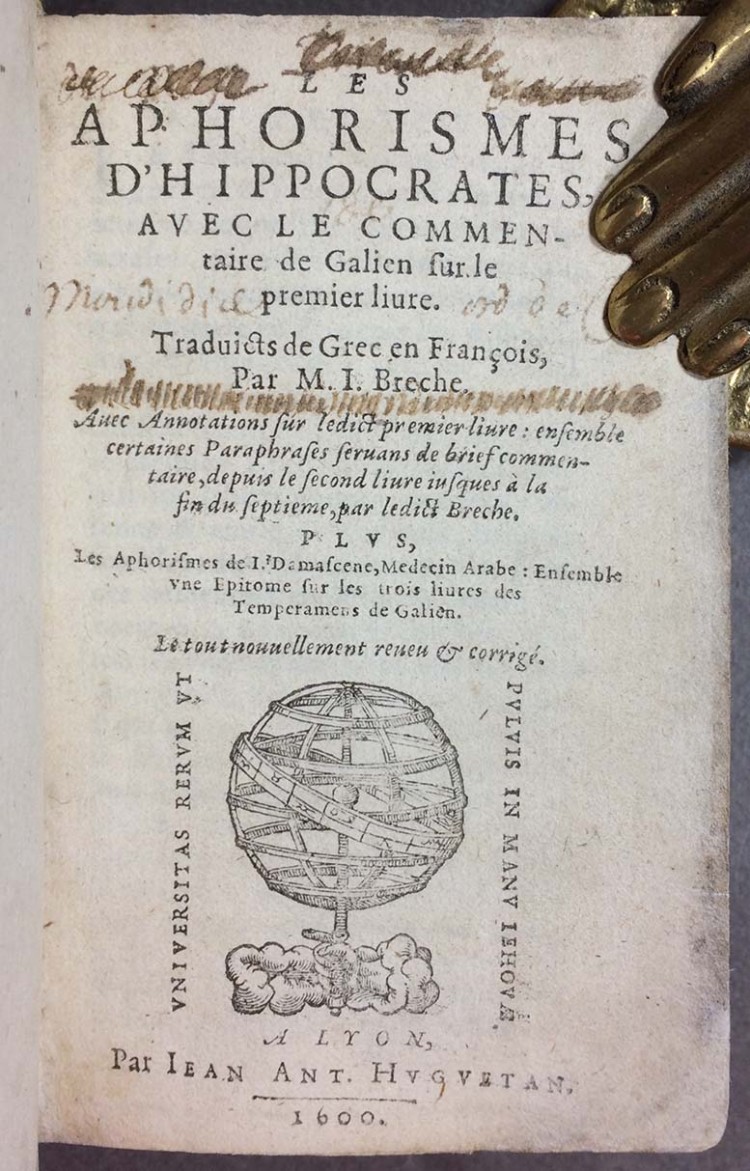 LES
APHORISMES
D'HIPPOCRATES,
AVEC LE COMMEN-
taire de Galien ſur le
premier liure.
Traduicts de Grec en François,
Par M. I. Breche.
Auec Annotations ſur ledict premier liure : enſemble
certaines Paraphraſes ſeruans de brief commen-
taire, depuis le ſecond liure iuſques à la
fin du ſeptieme, par ledict Breche.
PLVS,
Les Aphoriſmes de I. Damaſcene, Medecin Arabe : Enſemble
vne Epitome ſur les trois liures des
Temperamens de Galien.
Le tout nouuellement reueu & corrigé.
VNIVERSITAS RERVM VT
PVLVIS IN MANV IEHOVÆ.
A LYON,
Par IEAN ANT. HVGVETAN.
1600.